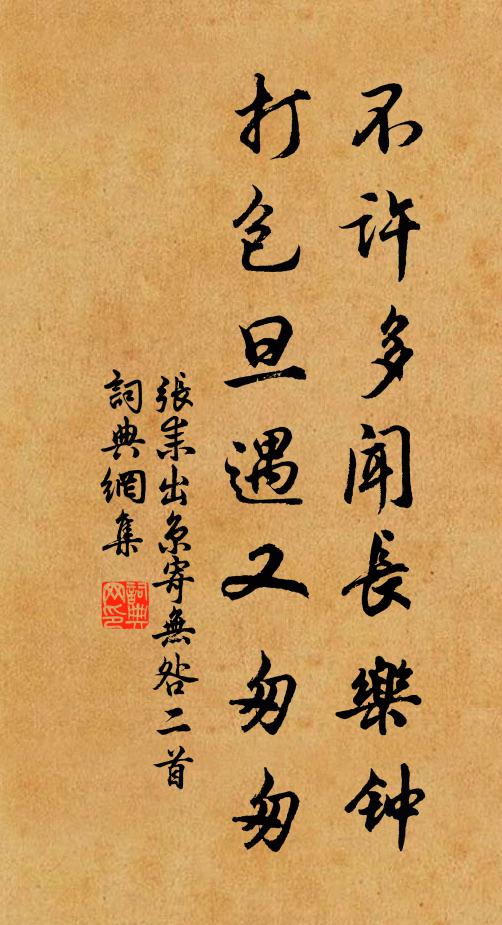 不许多闻長樂钟
打包旦遇又匆匆
張耒出京寄無咎二首
詞典網集
詞典网印